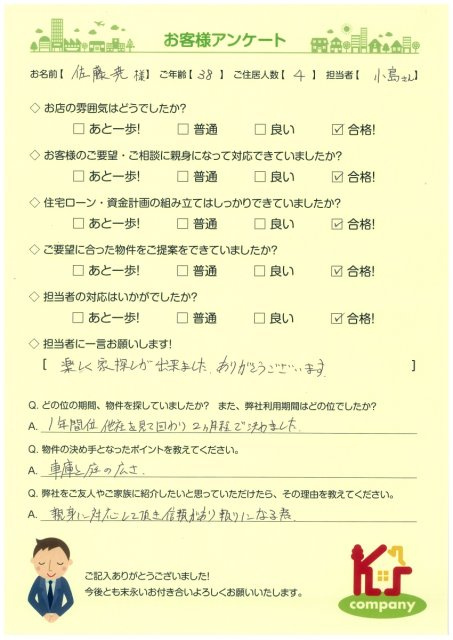 お客様アンケート
お名前【 佐藤 亮 様】 ご年齢【 38 】 ご住居人数【 4 】 担当者【 小島さん】
◇ お店の雰囲気はどうでしたか?
□ あと一歩! □ 普通 □ 良い ☑ 合格!
◇ お客様のご要望・ご相談に親身になって対応できていましたか?
□ あと一歩! □ 普通 □ 良い ☑ 合格!
◇ 住宅ローン・資金計画の組み立てはしっかりできていましたか?
□ あと一歩! □ 普通 □ 良い ☑ 合格!
◇ ご要望に合った物件をご提案をできていましたか?
□ あと一歩! □ 普通 □ 良い ☑ 合格!
◇ 担当者の対応はいかがでしたか?
□ あと一歩! □ 普通 □ 良い ☑ 合格!
◇ 担当者に一言お願いします!
[ 楽しく家探しが出来ました。ありがとうございます。 ]
Q. どの位の期間、物件を探していましたか? また、弊社利用期間はどの位でしたか?
A. 1年間位 他社を見て回わり 2ヵ月程で決めました。
Q. 物件の決め手となったポイントを教えてください。
A. 車庫と庭の広さ。
Q. 弊社をご友人やご家族に紹介したいと思っていただけたら、その理由を教えてください。
A. 親身に対応して頂き信頼があり頼りになる為。
ご記入ありがとうございました!
今後とも末永いお付き合いよろしくお願いいたします。
K's
company